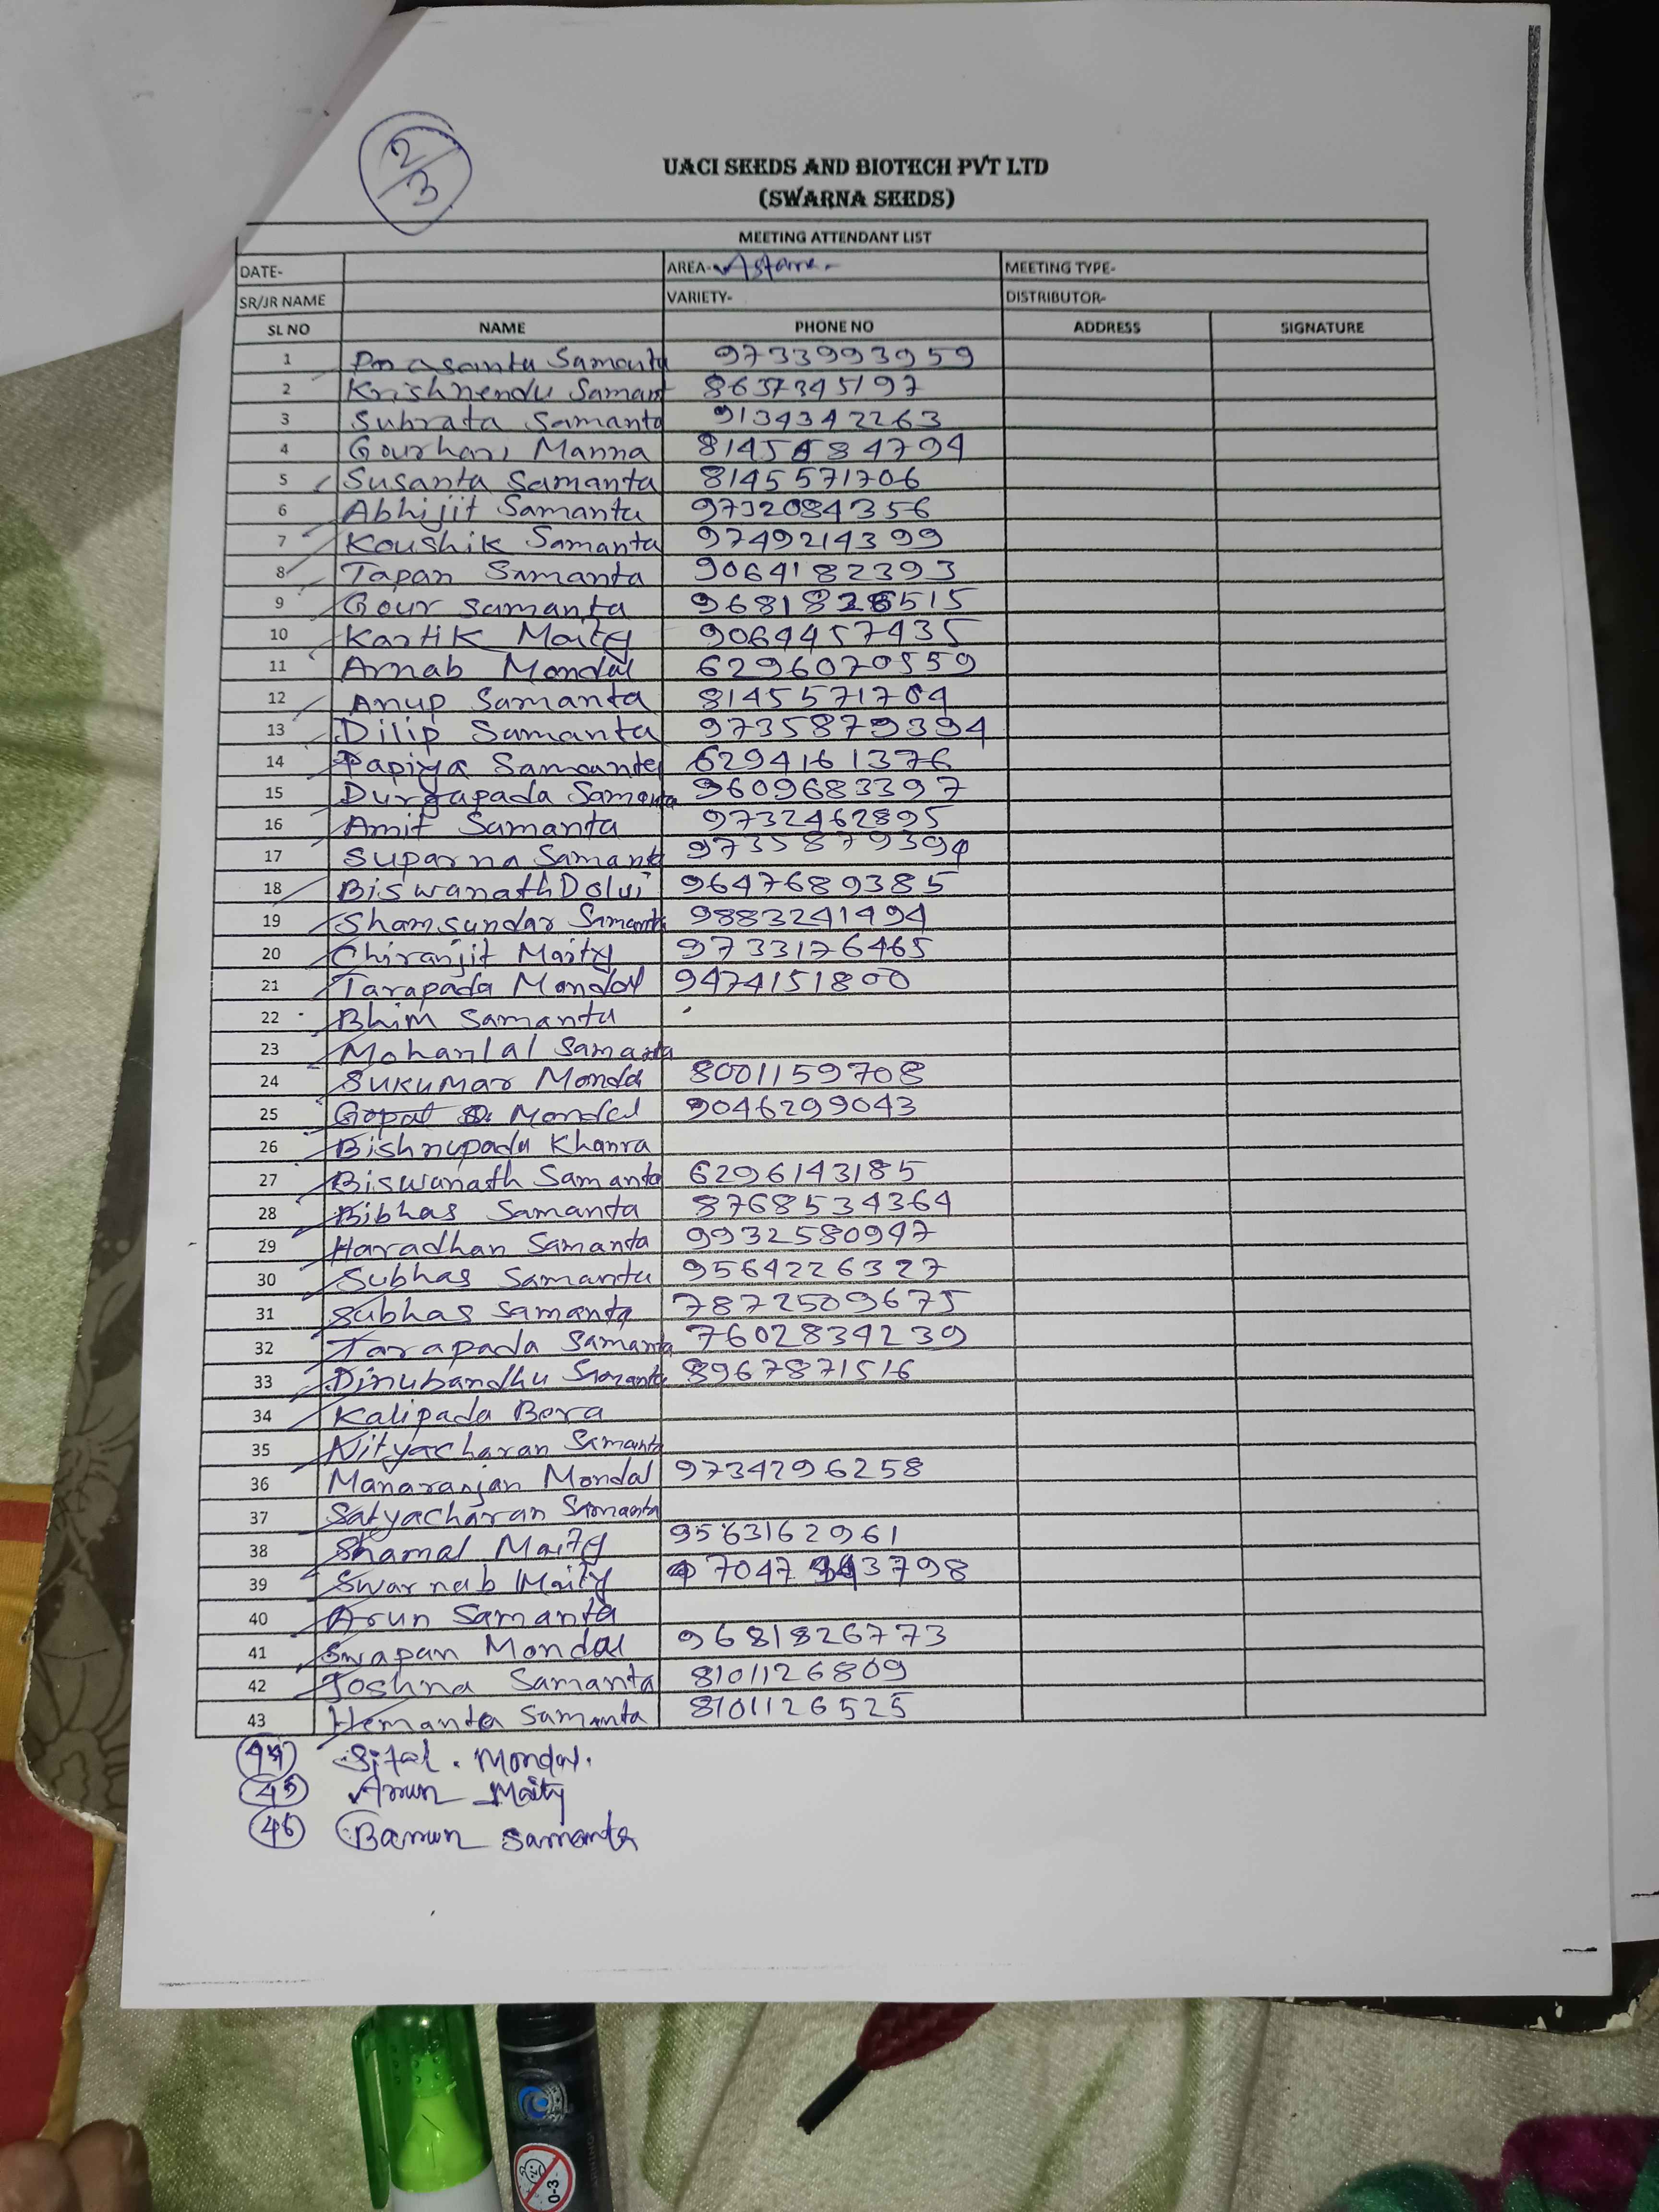 2/3
UACI SEEDS AND BIOTECH PVT LTD
(SWARNA SEEDS)
MEETING ATTENDANT LIST
DATE- AREA- MEETING TYPE-
SR/JR NAME VARIETY- DISTRIBUTOR-
SL NO NAME PHONE NO ADDRESS SIGNATURE
1 Prasanta Samanta 9733993959
2 Krishnendu Samant 8637345197
3 Subrata Samanta 9134342263
4 Gourhari Manna
5 Susanta Samanta 8145571706
6 Abhijit Samanta 9732084356
7 Koushik Samanta 9749214399
8 Tapan Samanta 9064182393
9 Gour samanta
10 Kartik Maity 9064457435
11 Arnab Mondal 6296070559
12 Anup Samanta 8145571704
13 Dilip Samanta 9735879394
14 Papiya Samanta 6294161376
15 Durgapada Samanta 9609683397
16 Amit Samanta 9732462895
17 Suparna Samanta 9735879394
18 Biswanath Dolui 9647689385
19 Shamsundar Samanta 9883241494
20 Chiranjit Maity 9733176465
21 Tarapada Mondal 9474151800
22 Bhim Samanta
23 Mohanlal Samanta
24 Sukumar Mondal 8001159708
25 Gopal Mondal 9046299043
26 Bishnupada Khanra
27 Biswanath Samanta 6296143185
28 Bibhas Samanta 8768534364
29 Haradhan Samanta 9932580947
30 Subhas Samanta 9564226327
31 Subhas Samanta 7872509675
32 Tarapada Samanta 7602834239
33 Dinubandhu Samanta 8967871516
34 Kalipada Bera
35 Nityacharan Samanta
36 Manaranjan Mondal 9734296258
37 Satyacharan Samanta
38 Shamal Maity 9563162961
39 Swarnab Maity
40 Arun Samanta
41 Swapan Mondal 9681826773
42 Joshna Samanta 8101126809
43 Hemanta Samanta 8101126525
44 Sital. Mondal.
45 Arun Maity
46 Barun Samanta
0-3